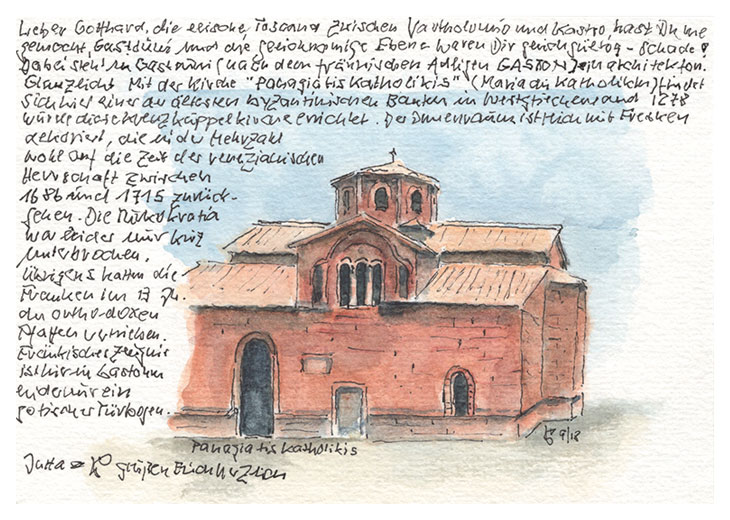 Lieber Gotthard, die elische Toscana zwischen Vartholomio und Kastro, hast Du nie
gemocht, Gastouni und die gleichnamige Ebene waren Dir gleichgültig - Schade!
Dabei steht in Gastouni (nach dem fränkischen Adligen GASTON) ein architekton.
Glanzlicht. Mit der Kirche "Panagia tis Katholikis" (Maria der Katholikin) findet
sich hier einer der ältesten byzantinischen Bauten in Westgriechenland 1278
wurde diese Kreuzkuppelkirche errichtet. Der Innenraum ist reich mit Fresken
dekoriert, die in der Mehrzahl
wohl auf die Zeit der venezianischen
Herrschaft zwischen
1686 und 1715 zurück-
gehen. Die
war leider nur kurz
unterbrochen.
Übrigens hatten die
Franken im 13 Jh.
den orthodoxen
Pfaffen vertrieben.
Fränkisches Zeugnis
ist hier in Gastouni
leider nur ein
gotischer Türbogen.
Panagia tis Katholikis
9/18
Jutta grüßen Euch herzlich